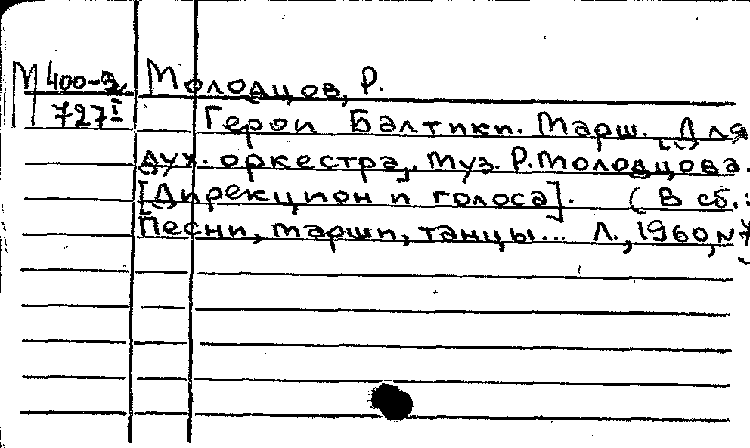 М 400-3/727 I
Молодцов, Р.
Герои Балтики. Марш. Для
дух. оркестра. Муз. Р. Молодцова.
[Дирекцион и голоса]. (В сб.:
Песни, марши, танцы... Л., 1960, №